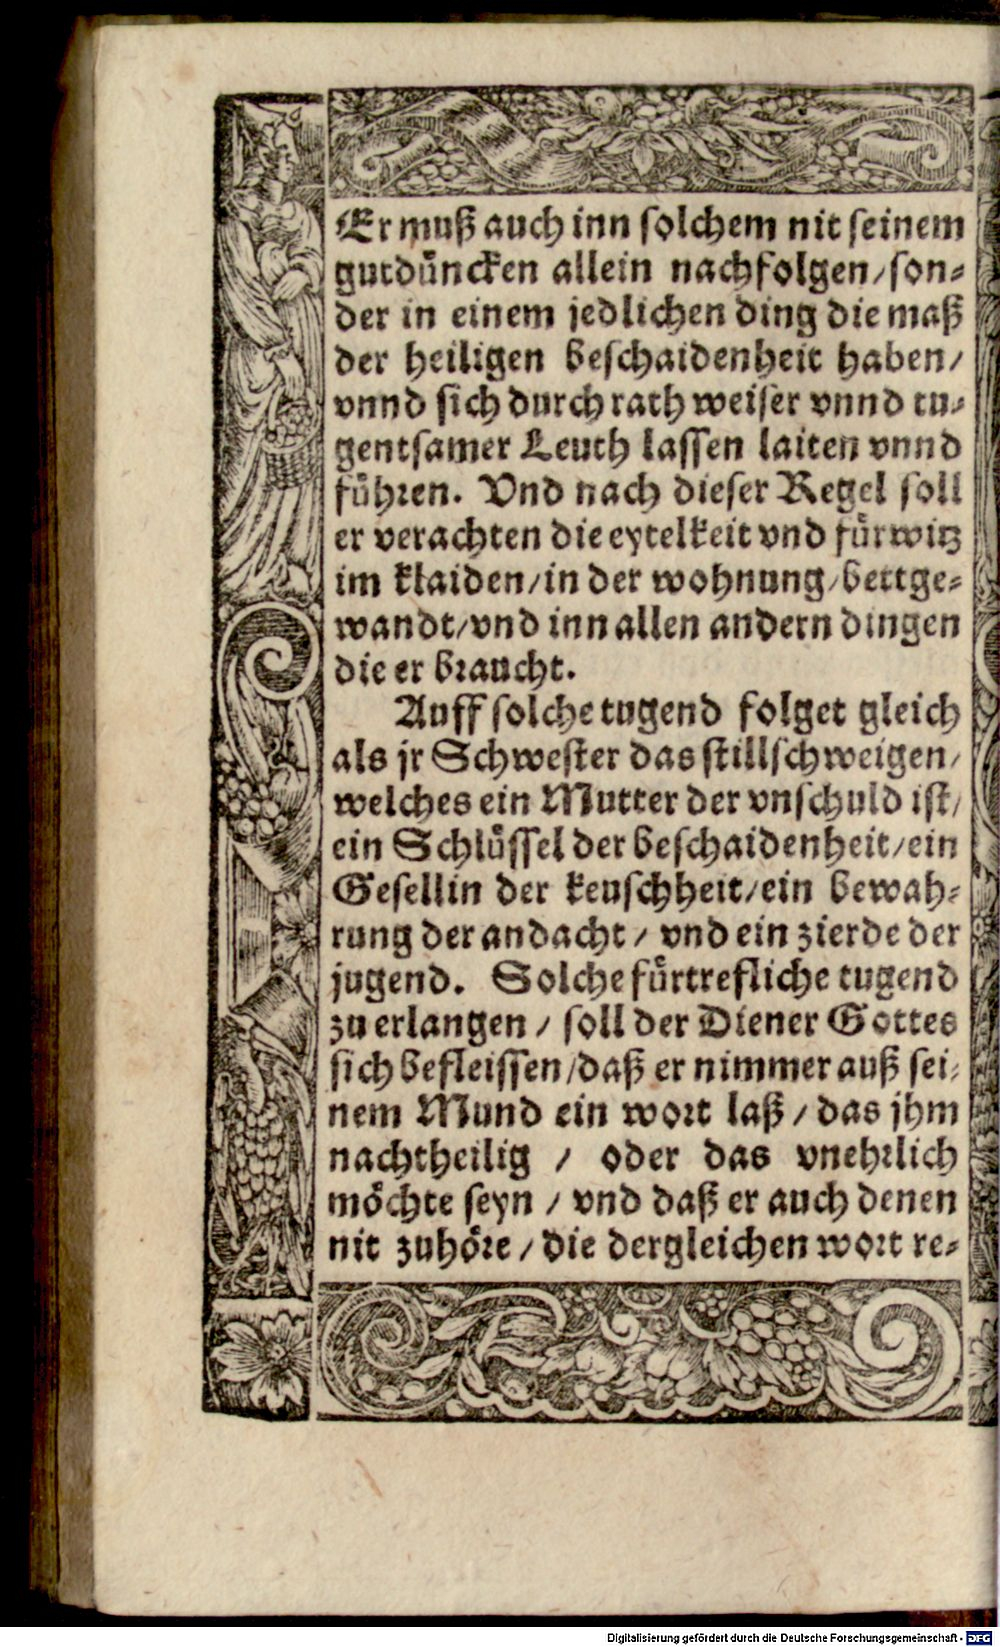 Er muß auch inn solchem nit seinem
gutdüncken allein nachfolgen/son-
der in einem jedlichen ding die maß
der heiligen beschaidenheit haben/
vnnd sich durch rath weiser vnnd tu-
gentsamer Leuth lassen laiten vnnd
führen. Vnd nach dieser Regel soll
er verachten die eytelkeit vnd fürwitz
im klaiden/in der wohnung/bettge-
wandt/vnd inn allen andern dingen
die er braucht.
Auff solche tugend folget gleich
als jr Schwester das stillschweigen/
welches ein Mutter der vnschuld ist/
ein Schlüssel der beschaidenheit/ein
Gesellin der keuschheit/ein bewah-
rung der andacht/ vnd ein zierde der
jugend. Solche fürtrefliche tugend
zu erlangen/ soll der Diener Gottes
sich befleissen/daß er nimmer auß sei-
nem Mund ein wort laß/ das jhm
nachtheilig / oder das vnehrlich
möchte seyn / vnd daß er auch denen
nit zuhöre/ die dergleichen wort re-
Digitalisierung gefördert durch die Deutsche Forschungsgemeinschaft - DFG